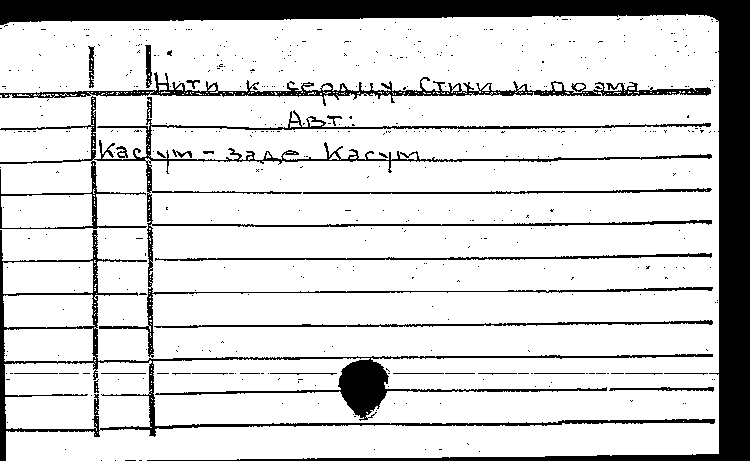 Нити к сердцу. Стихи и поэма.
Авт:
Касум - заде Касум